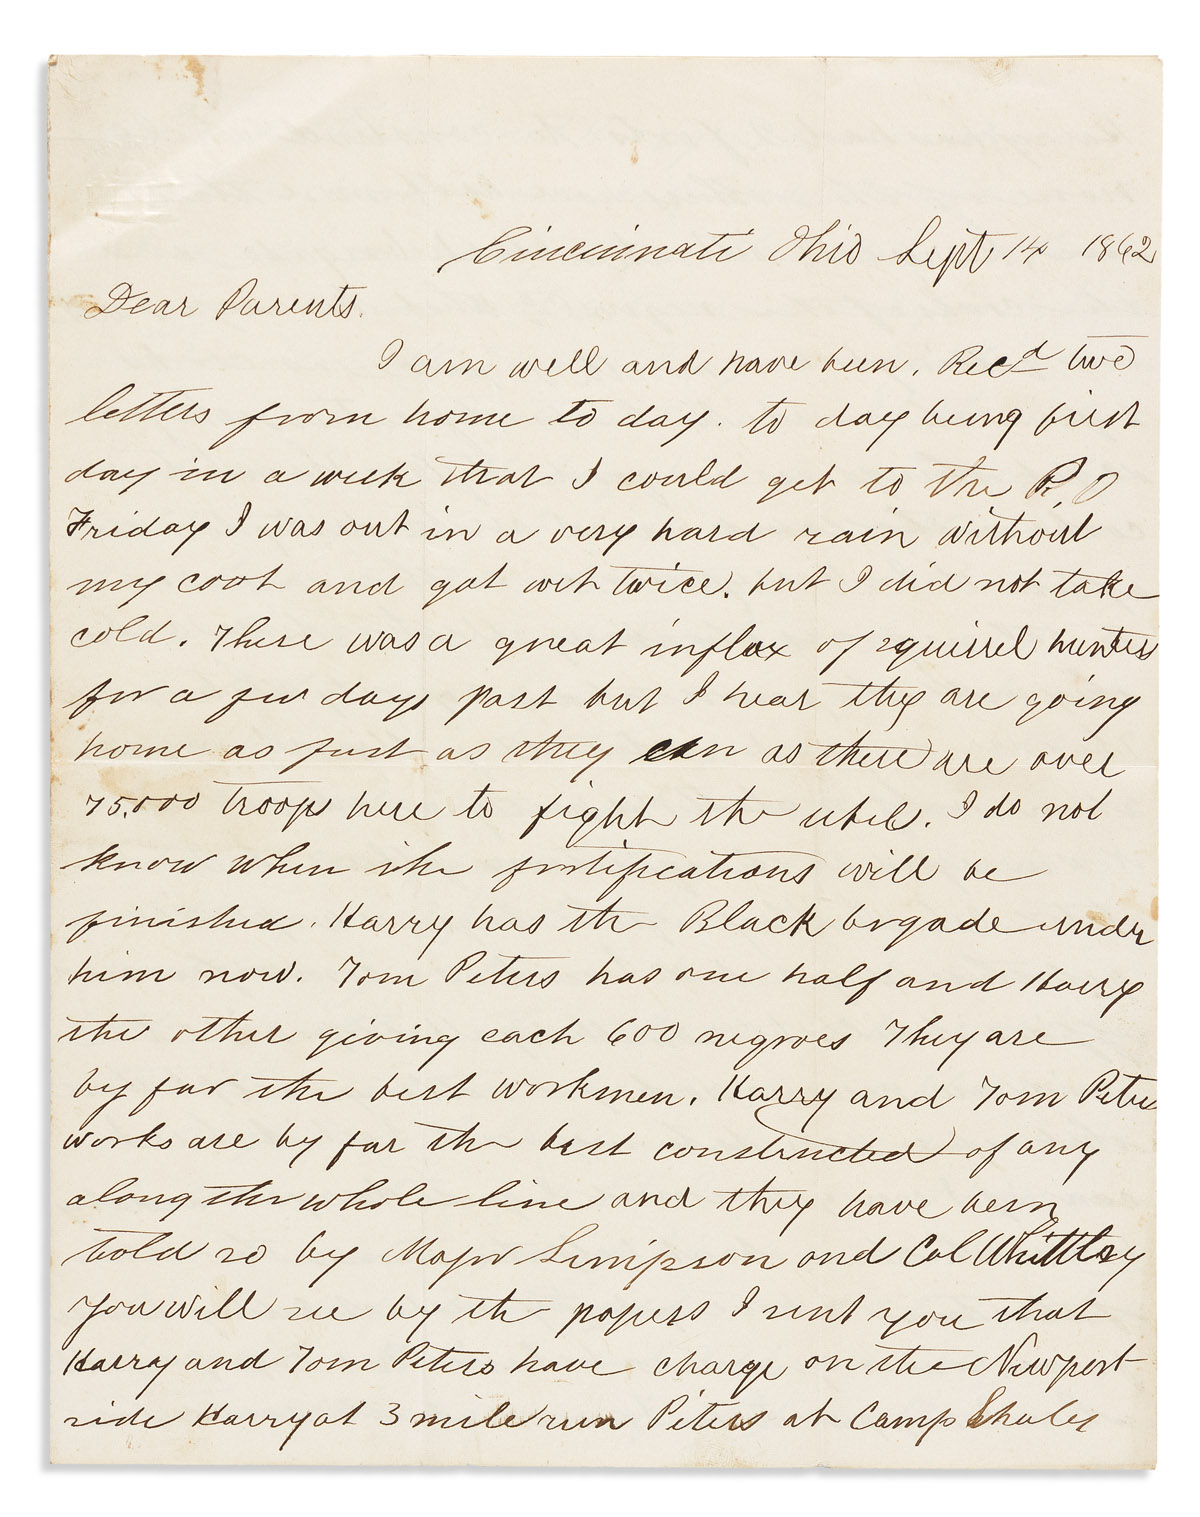 Cincinnati Ohio Sept 14 1862
Dear Parents.
I am well and have been. Recd two
letters from home to day. to day being first
day in a week that I could get to the P.O
Friday I was out in a very hard rain without
my coat and got wet twice. but I did not take
cold. There was a great influx of squirrel hunters
for a few days past but I hear they are going
home as fast as they can as there are over
75,000 troops here to fight the rebel. I do not
know when the fortifications will be
finished. Harry has the Black brgade under
him now. Tom Peters has one half and Harry
the other giving each 600 negroes They are
by far the best workmen. Harry and Tom Peters
works are by far the best constructed of any
along the whole line and they have been
told so by Major Simpson and Col Whittlsy
You will see by the papers I sent you that
Harry and Tom Peters have charge on the Newport
side Harry at 3 mile run Peters at Camp Shaler